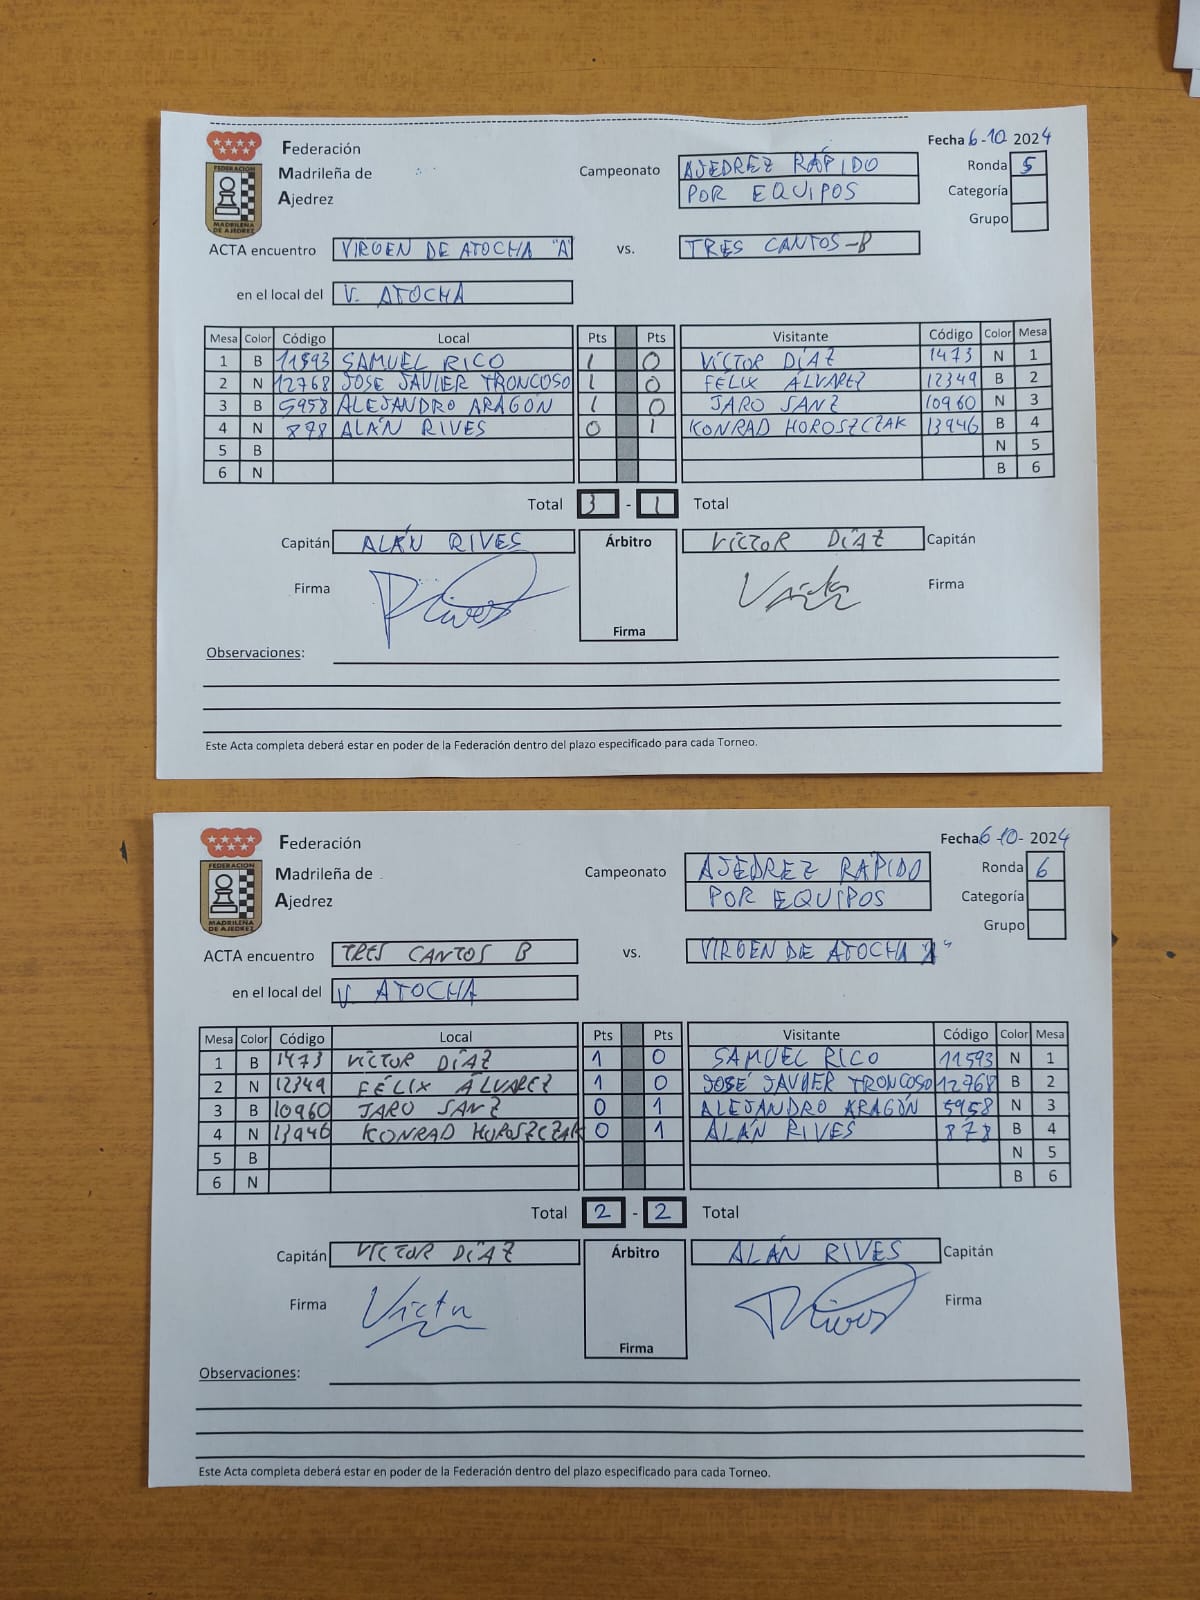 Federación
Madrileña de
Ajedrez
FEDERACION
MADRILEÑA
DE AJEDREZ
Fecha 6-10 2024
Campeonato AJEDREZ RÁPIDO
POR EQUIPOS
Ronda 5
Categoría
Grupo
ACTA encuentro VIRGEN DE ATOCHA "A" vs. TRES CANTOS-B
en el local del V. ATOCHA
Mesa Color Código Local Pts Pts Visitante Código Color Mesa
1 B 11593 SAMUEL RICO 1 0 VÍCTOR DÍAZ 1473 N 1
2 N 12768 JOSE JAVIER TRONCOSO 1 0 FÉLIX ÁLVAREZ 12349 B 2
3 B 5958 ALEJANDRO ARAGÓN 1 0 JARO SANZ 10960 N 3
4 N 878 ALÁN RIVES 0 1 KONRAD HOROSZCZAK 13946 B 4
5 B N 5
6 N B 6
Total 3 - 1 Total
Capitán ALÁN RIVES Árbitro VÍCTOR DÍAZ Capitán
Firma Rives Víctor Firma
Firma
Observaciones:
Este Acta completa deberá estar en poder de la Federación dentro del plazo especificado para cada Torneo.
Federación
Madrileña de
Ajedrez
FEDERACION
MADRILEÑA
DE AJEDREZ
Fecha 6-10- 2024
Campeonato AJEDREZ RÁPIDO
POR EQUIPOS
Ronda 6
Categoría
Grupo
ACTA encuentro TRES CANTOS B vs. VIRGEN DE ATOCHA "A"
en el local del V. ATOCHA
Mesa Color Código Local Pts Pts Visitante Código Color Mesa
1 B 1473 VÍCTOR DÍAZ 1 0 SAMUEL RICO 11593 N 1
2 N 12349 FÉLIX ÁLVAREZ 1 0 JOSÉ JAVIER TRONCOSO 12768 B 2
3 B 10960 JARO SANZ 0 1 ALEJANDRO ARAGÓN 5958 N 3
4 N 13946 KONRAD HOROSZCZAK 0 1 ALÁN RIVES 878 B 4
5 B N 5
6 N B 6
Total 2 - 2 Total
Capitán VÍCTOR DÍAZ Árbitro ALÁN RIVES Capitán
Firma Víctor Rives Firma
Firma
Observaciones:
Este Acta completa deberá estar en poder de la Federación dentro del plazo especificado para cada Torneo.